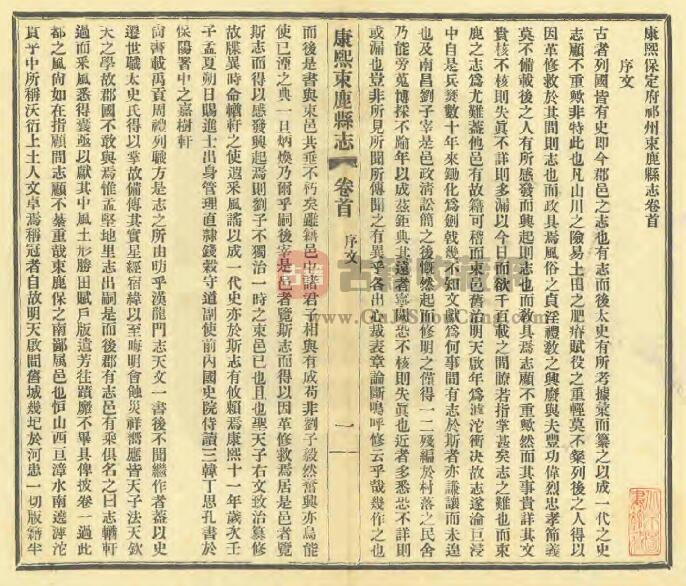 康熙保定府祁州束鹿縣志卷首
序文
古者列國皆有史即今郡邑之志也有志而後太史有所考據彙而纂之以成一代之史
志顧不重歟非特此也凡山川之險易土田之肥瘠賦役之重輕莫不粲列後之人得以
因革修救於其間則志也而政具焉風俗之貞淫禮敎之興廢與夫豐功偉烈忠孝節義
莫不備載後之人有所感發而興起則志也而敎具焉志顧不重歟然而其事貴詳其文
貴核不核則失眞不詳則多漏以今日而欲千百載之間瞭若指掌甚矣志之難也而束
鹿之志爲尤難蓋他邑有故籍可稽而束邑舊治明天啟年爲滹沱衝决故志遂淪巨浸
中自是兵燹數十年來鋤化爲劍戟幾不知文獻爲何事間有志於斯者亦謙讓而未遑
也及南昌劉子宰是邑政淸訟簡之後慨然起而修明之僅得一二殘編於村落之民舍
乃能旁蒐博採不踰年以成茲鉅典其遠者寧闕恐不核則失眞也近者多悉恐不詳則
或漏也豈非所見所聞所傳聞之有異乎各出心裁表章論斷嗚呼修云乎哉幾作之也
康熙束鹿縣志
卷首 序文
一
而後是書與束邑共垂不朽矣雖籍邑中諸君子相與有成苟非劉子毅然奮興亦烏能
使已湮之典一旦炳煥乃爾乎嗣後宰是邑者覽斯志而得以因革修救焉居是邑者覽
斯志而得以感發興起焉則劉子不獨治一時之束邑已也且也聖天子右文政治纂修
故牒異時命輶軒之使遐采風謠以成一代史亦於斯志有攸賴焉康熙十一年歲次壬
子孟夏朔日賜進士出身管理直隸錢穀守道副使前內國史院侍讀三韓丁思孔書於
保陽署中之嘉樹軒
尙書載禹貢周禮列職方是志之所由昉乎漢龍門志天文一書後不聞繼作者蓋以史
遷世職太史氏得以掌故備傳其實星經宿緯以至晦明會蝕災祥禨應皆天子法天欽
天之學故郡國不敢與焉惟孟堅地里志出嗣是而後郡有志邑有乘俱名之曰志輶軒
過而采風悉得彙以獻其中風土形勝田賦戶版遺芳往蹟靡不畢具俾披卷一過此
都之風尙如在指顧間志顧不綦重哉束鹿保之南鄙屬邑也恒山西亘漳水南遶滹沱
貫乎中所稱沃衍上土人文卓焉稱冠者自故明天啟間舊城幾圮於河患一切版籍半
古籍收藏
www.GuJiShouCang.com